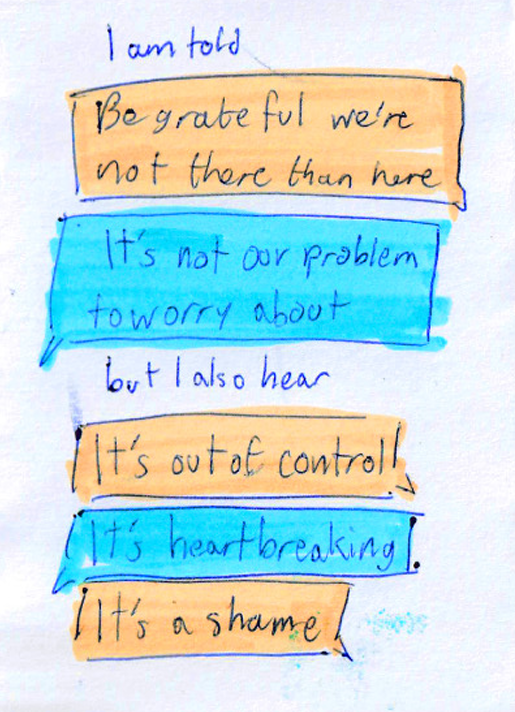 I am told
Be grateful we're
not there than here
It's not our problem
to worry about
but I also hear
It's out of control!
It's heartbreaking.
It's a shame